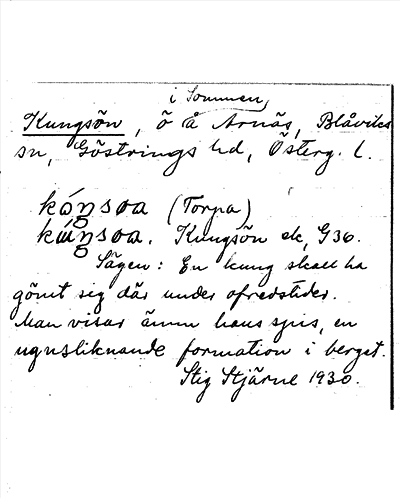 i Sommen,
Kungsön, ö å Arnäs, Blåviks
sn, Göstrings hd, Österg. l.
kóŋsøa (Torpa)
kɯ́ŋsøa. Kungsön ek, G36.
Sägen: En kung skall ha
gömt sig där under ofredstider.
Man visar ännu hans spis, en
ugnsliknande formation i berget.
Stig Stjärne 1930.